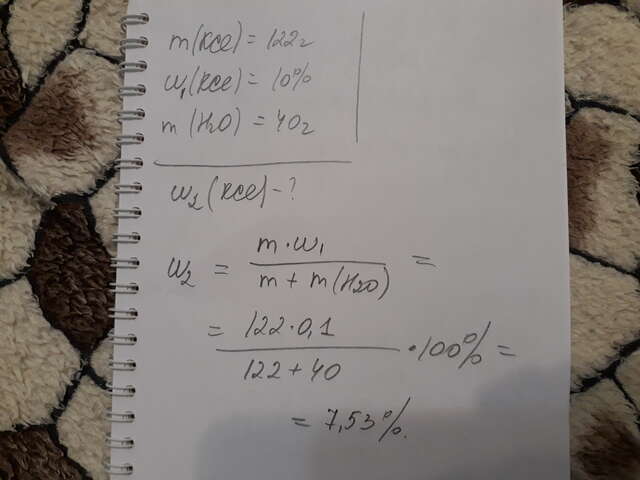 m(KCl) = 122г
ω₁(KCl) = 10%
m(H₂O) = 40г
ω₂(KCl) - ?
ω₂ = m·ω₁ / m + m(H₂O) =
= 122·0,1 / 122 + 40 · 100% =
= 7,53%.